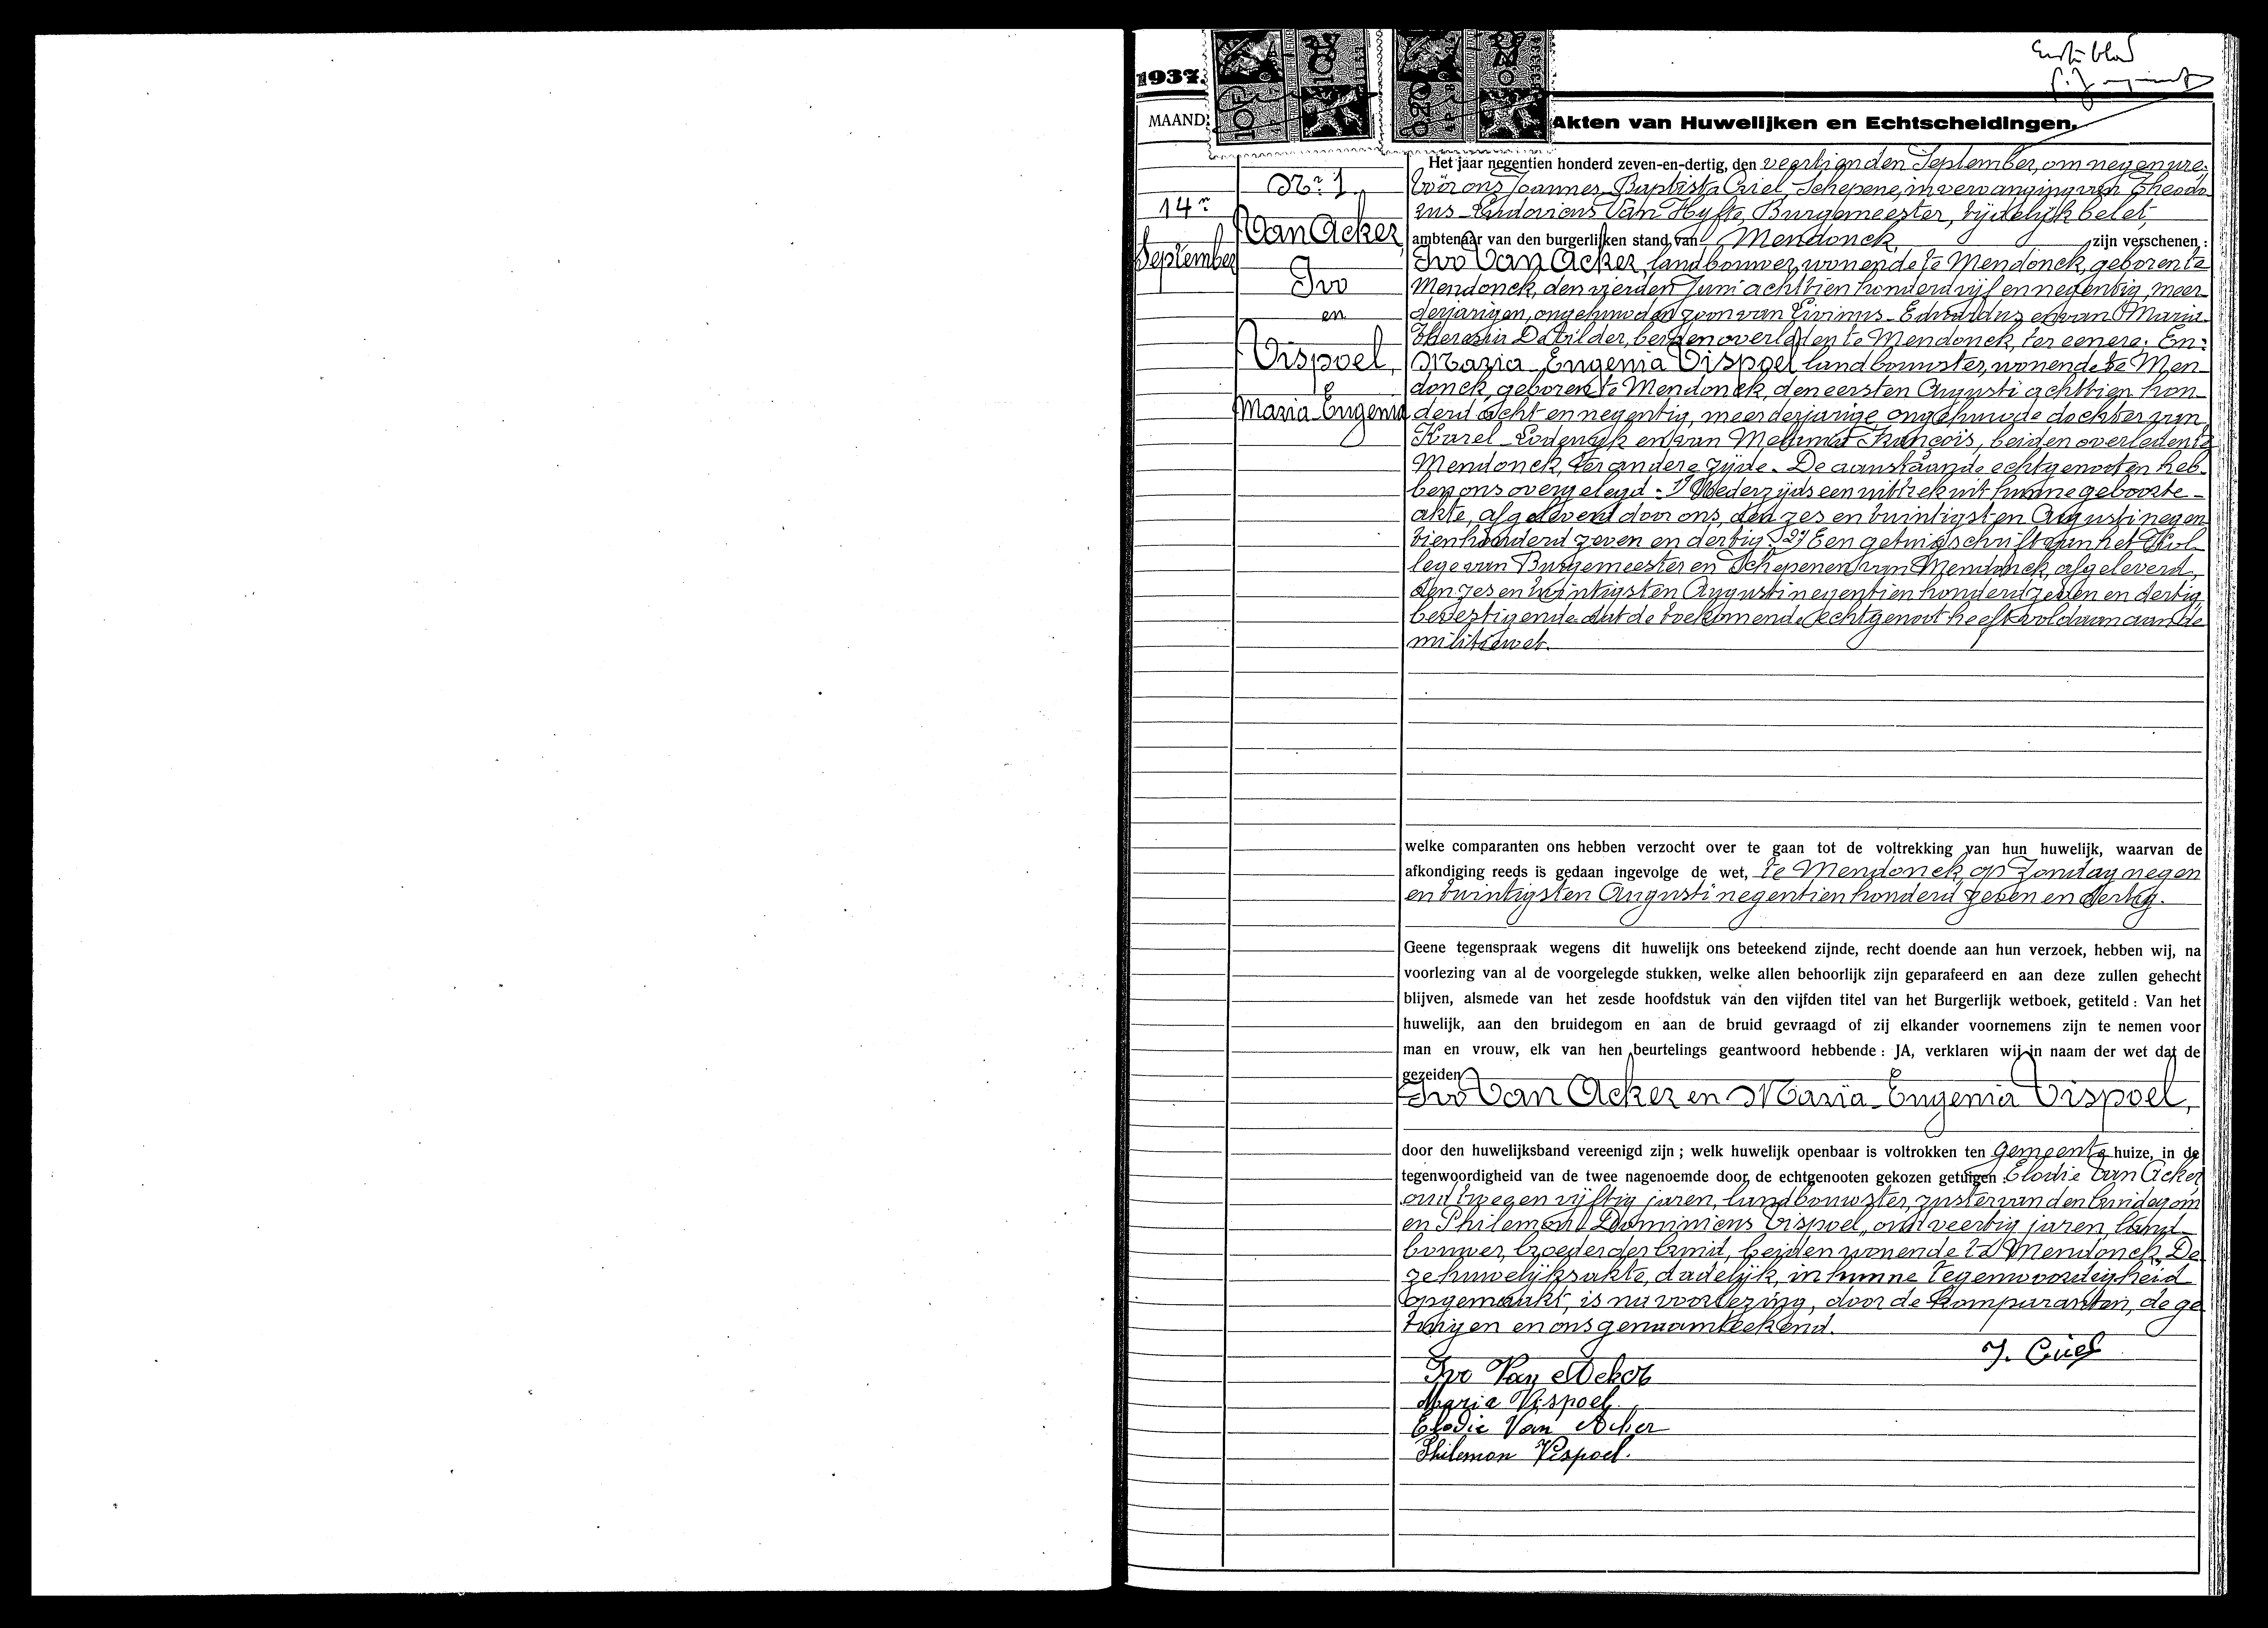 Eerste blad
1937.
MAAND.
Akten van Huwelijken en Echtscheidingen.
14n
September
Nr. 1
Van Acker,
Ivo
en
Vispoel,
Maria Eugenia
Het jaar negentien honderd zeven-en-dertig, den veertienden September, om negen ure,
voor ons Joannes Baptista Criel, Schepene, in vervanging van Theodo-
rus Ludovicus Van Hyfte, Burgemeester, tijdelijk belet,
ambtenaar van den burgerlijken stand van Mendonck, zijn verschenen :
Ivo Van Acker, landbouwer, wonende te Mendonck, geboren te
Mendonck, den vierden Juni achttien honderd vijf en negentig, meer-
derjarigen, ongehuwden zoon van Livinus Eduardus en van Maria-
Theresia De Wilder, beiden overleden te Mendonck, ter eenere; En:
Maria Eugenia Vispoel landbouwster, wonende te Men-
donck, geboren te Mendonck, den eersten Augusti achttien hon-
derd acht en negentig, meerderjarige ongehuwde dochter van
Karel Lodewijk en van Melanie François, beiden overleden te
Mendonck, ter andere zijde. De aanstaande echtgenooten heb-
ben ons overgelegd : 1) Wederzijds een uittrek uit hunne geboorte-
akte, afgeleverd door ons, den zes en twintigsten Augusti negen
tien honderd zeven en dertig. 2) Een getuigschrift van het Kol-
lege van Burgemeester en Schepenen van Mendonck, afgeleverd,
den zes en twintigsten Augusti negentien honderd zeven en dertig,
bevestigende dat de toekomende echtgenoot heeft voldaan aan de
militiewet.
welke comparanten ons hebben verzocht over te gaan tot de voltrekking van hun huwelijk, waarvan de
afkondiging reeds is gedaan ingevolge de wet, te Mendonck, op Zondag negen
en twintigsten Augusti negentien honderd zeven en dertig.
Geene tegenspraak wegens dit huwelijk ons beteekend zijnde, recht doende aan hun verzoek, hebben wij, na
voorlezing van al de voorgelegde stukken, welke allen behoorlijk zijn geparafeerd en aan deze zullen gehecht
blijven, alsmede van het zesde hoofdstuk van den vijfden titel van het Burgerlijk wetboek, getiteld : Van het
huwelijk, aan den bruidegom en aan de bruid gevraagd of zij elkander voornemens zijn te nemen voor
man en vrouw, elk van hen beurtelings geantwoord hebbende : JA, verklaren wij in naam der wet dat de
gezeiden
Ivo Van Acker en Maria Eugenia Vispoel,
door den huwelijksband vereenigd zijn ; welk huwelijk openbaar is voltrokken ten gemeente huize, in de
tegenwoordigheid van de twee nagenoemde door de echtgenooten gekozen getuigen : Elodie Van Acker
oud twee en vijftig jaren, landbouwster, zuster van den bruidegom
en Philemon Dominicus Vispoel, oud veertig jaren, land-
bouwer, broeder der bruid, beiden wonende te Mendonck. De-
ze huwelijksakte, dadelijk, in hunne tegenwoordigheid
opgemaakt, is na voorlezing, door de komparanten, de ge
tuigen en ons genaamteekend.
J. Criel
Ivo Van Acker
Maria Vispoel.
Elodie Van Acker
Philemon Vispoel.